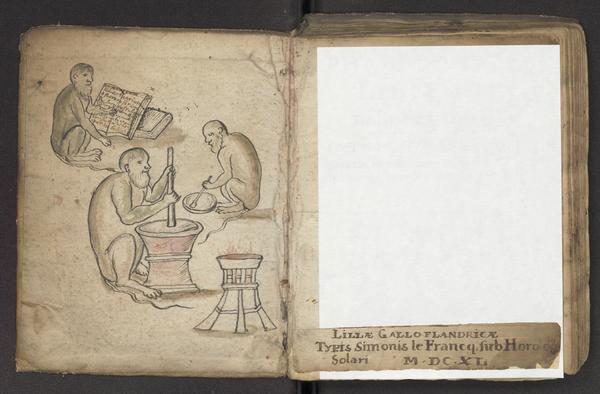 LILLÆ GALLO-FLANDRICÆ
TYPIS Simonis le Francq, sub Horo
Solari M·DC·XL